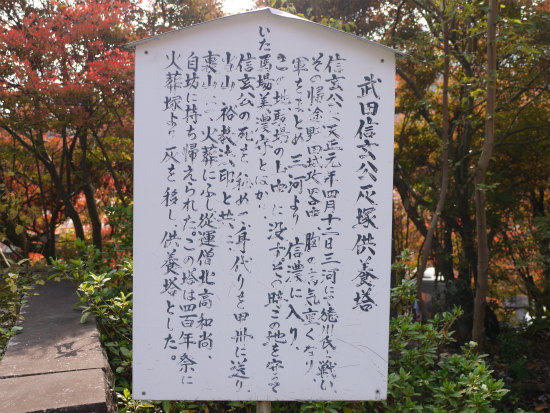 武田信玄公灰塚供養塔
信玄公は天正元年四月十二日三河にて徳川氏と戦い、
その帰途野田城攻略 肺の病気重くなり
軍をまとめ 三河より信濃に入り、
この地馬場の山中に没す。その時この地を守って
いた馬場美濃守とはかり
信玄公の死を秘め、身代りを甲州に送り
山 裕教法印と共に
裏山に火葬にふし従軍僧北高和尚、
自坊に持ち帰えられたこの塔は四百年祭に
火葬塚より灰を移し供養塔とした。